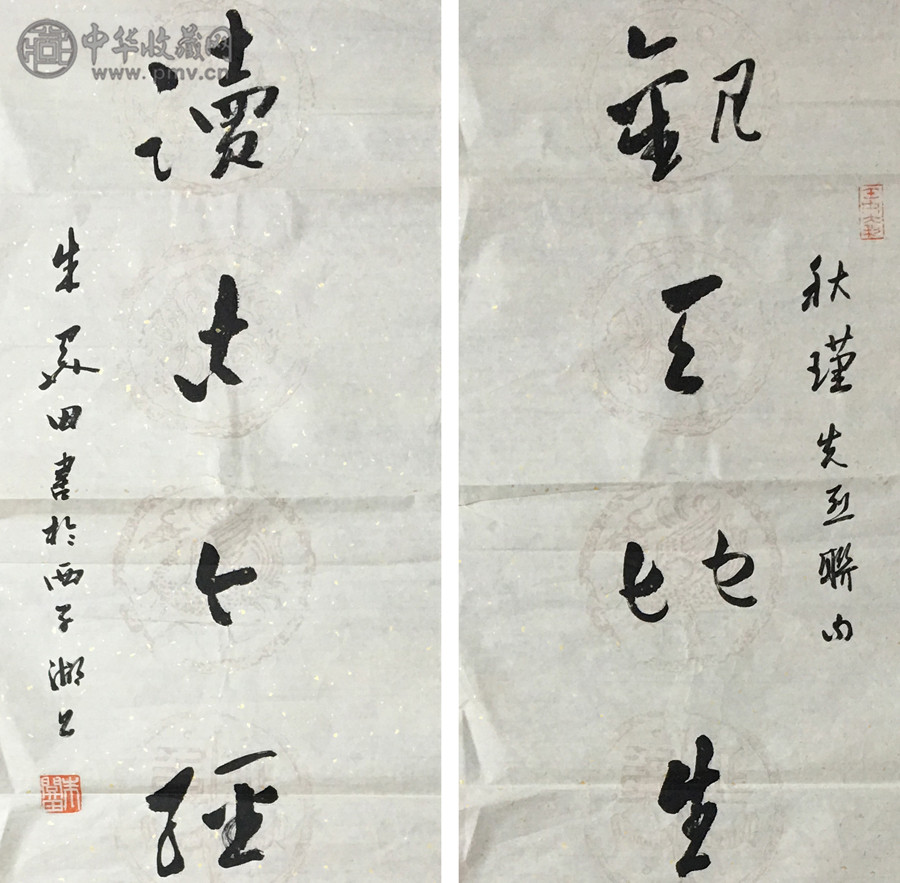 中华收藏网
www.pmv.cn
秋瑾先烈聯句
觀天地生
讀古今經
朱關田書於西子湖上